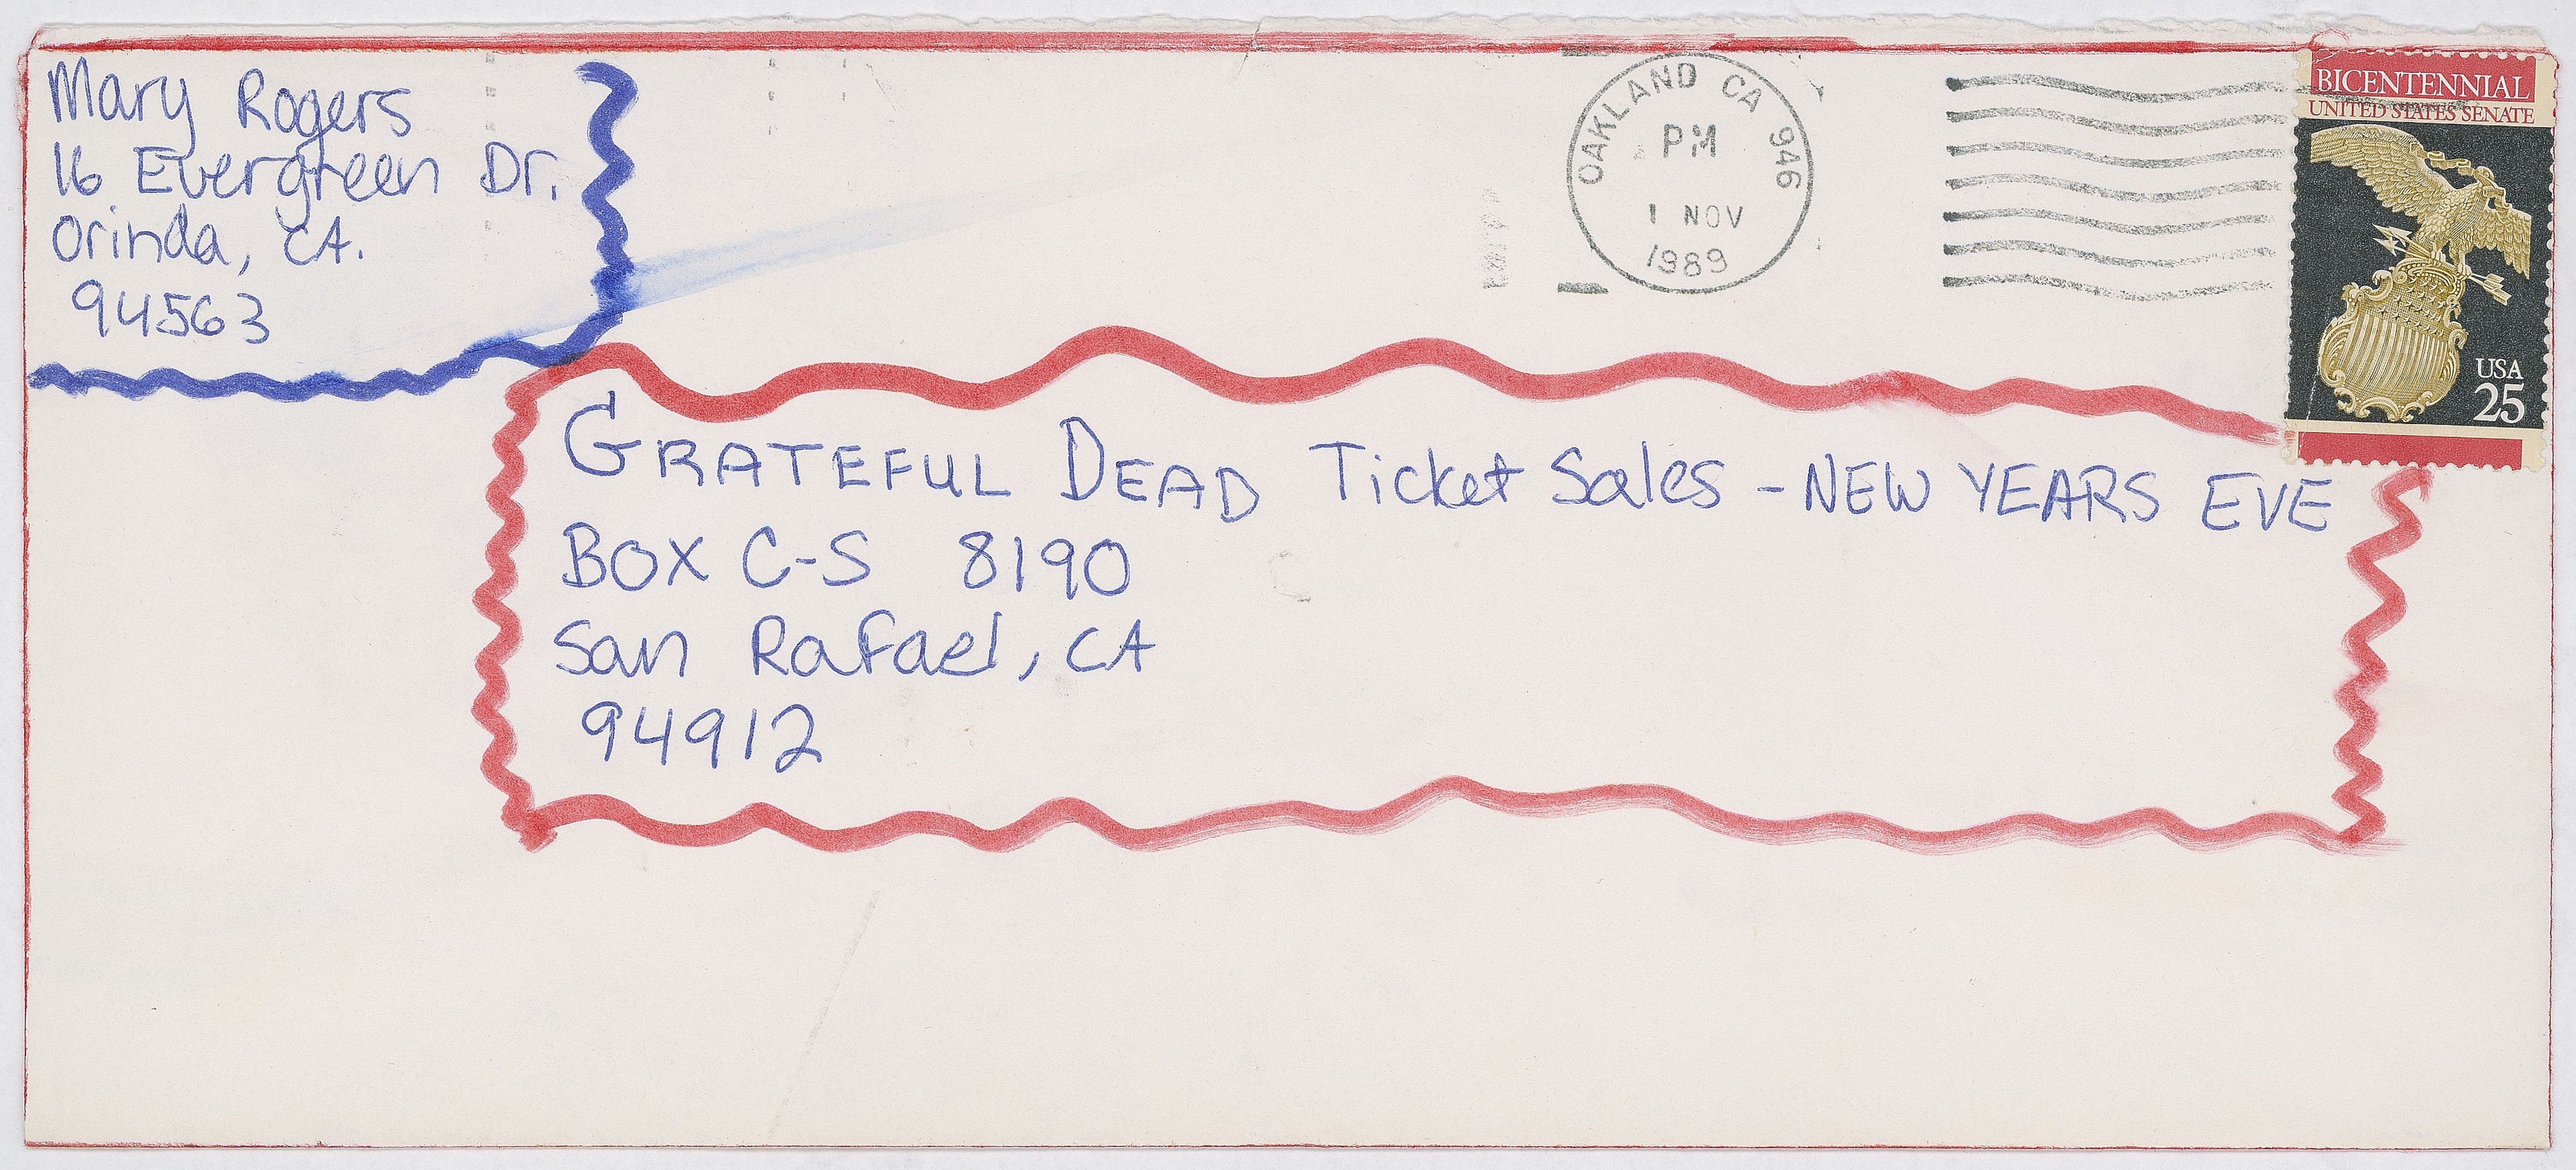 Mary Rogers
16 Evergreen Dr.
Orinda, CA.
94563
OAKLAND CA 946
PM
1 NOV
1989
BICENTENNIAL
UNITED STATES SENATE
USA
25
GRATEFUL DEAD Ticket Sales - NEW YEARS EVE
BOX C-S 8190
San Rafael, CA
94912